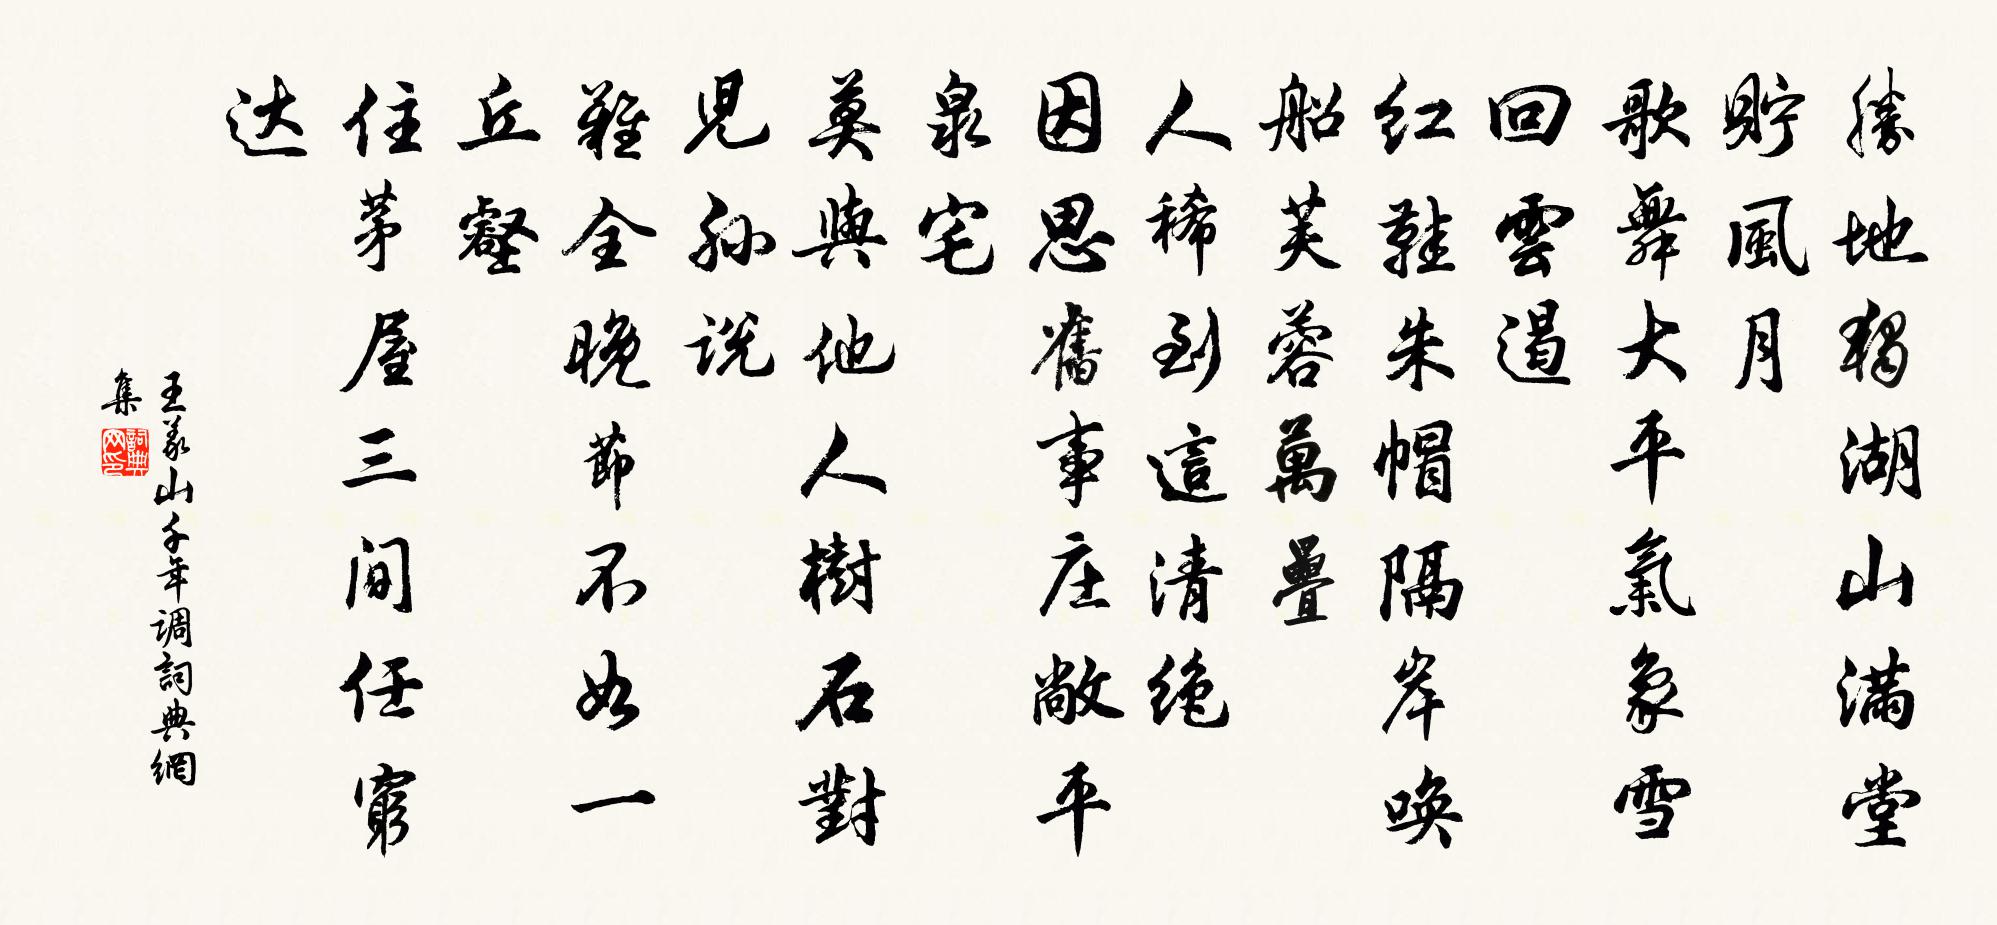 勝地獨湖山滿堂
貯風月
歌舞大平氣象雪
回雲遏
红鞋朱帽隔岸唤
船芙蓉萬疊
人稀到這清绝
因思舊事庄敞平
泉宅
莫與他人樹石對
児孙说
難全晚節不如一
丘壑
住茅屋三间任窮
达
王義山千年调詞典網
集
詞典
网印